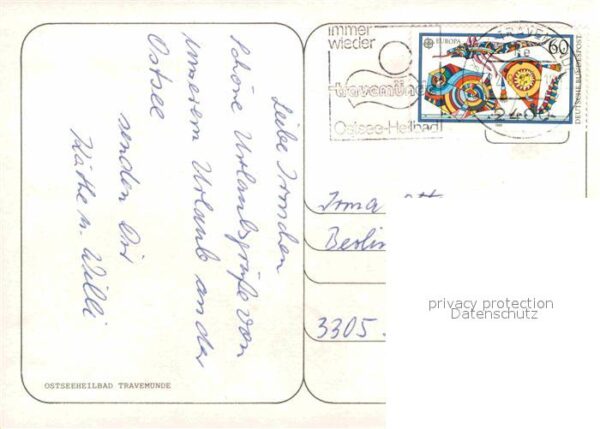 Liebe Irmchen
schöne Urlaubsgrüße von
unserem Urlaub an der
Ostsee
senden Dir
Käthe u. Willi
OSTSEEHEILBAD TRAVEMÜNDE
immer
wieder
travemünde
Ostsee-Heilbad
EUROPA
60
DEUTSCHE BUNDESPOST
TRAVEMÜNDE
2400
Irma
Berlin
3305
privacy protection
Datenschutz